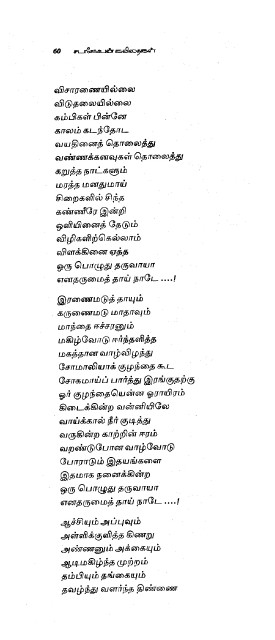 60 சடகோபன் கவிதைகள்
விசாரணையில்லை
விடுதலையில்லை
கம்பிகள் பின்னே
காலம் கடந்தோட
வயதினைத் தொலைத்து
வண்ணக்கனவுகள் தொலைத்து
கறுத்த நாட்களும்
மரத்த மனதுமாய்
சிறைகளில் சிந்த
கண்ணீரே இன்றி
ஒளியினைத் தேடும்
விழிகளிற்கெல்லாம்
விளக்கினை ஏத்த
ஒரு பொழுது தருவாயா
எனதருமைத் தாய் நாடே ....!
இரணைமடுத் தாயும்
கருணைமடு மாதாவும்
மாந்தை ஈச்சரனும்
மகிழ்வோடு ஈர்த்தளித்த
மகத்தான வாழ்விழந்து
சோமாலியாக் குழந்தை கூட
சோகமாய்ப் பார்த்து இரங்குதற்கு
ஓர் குழந்தையென்ன ஓராயிரம்
கிடைக்கின்ற வன்னியிலே
வாய்க்கால் நீர் குடித்து
வருகின்ற காற்றின் ஈரம்
வறண்டுபோன வாழ்வோடு
போராடும் இதயங்களை
இதமாக நனைக்கின்ற
ஒரு பொழுது தருவாயா
எனதருமைத் தாய் நாடே ....!
ஆச்சியும் அப்புவும்
அள்ளிக்குளித்த கிணறு
அண்ணனும் அக்கையும்
ஆடிமகிழ்ந்த முற்றம்
தம்பியும் தங்கையும்
தவழ்ந்து வளர்ந்த திண்ணை